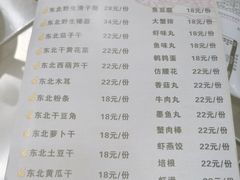 东北野生滑子菇 28元/份
东北野生榛蘑 34元/份
东北茄子干 22元/份
东北干黄花菜 22元/份
东北西葫芦干 22元/份
东北木耳 22元/份
东北粉条 18元/份
东北干豆角 18元/份
东北萝卜干 18元/份
东北土豆干 18元/份
东北黄瓜干 18元/份
鱼豆腐 18元/份
大蟹排 18元/份
虾味丸 18元/份
鱼味丸 18元/份
鹌鹑蛋 18元/份
仿腰花 22元/份
香菇丸 22元/份
牛肉丸 22元/份
墨鱼丸 22元/份
蟹肉棒 22元/份
虾燕饺 22元/份
培根 22元/份